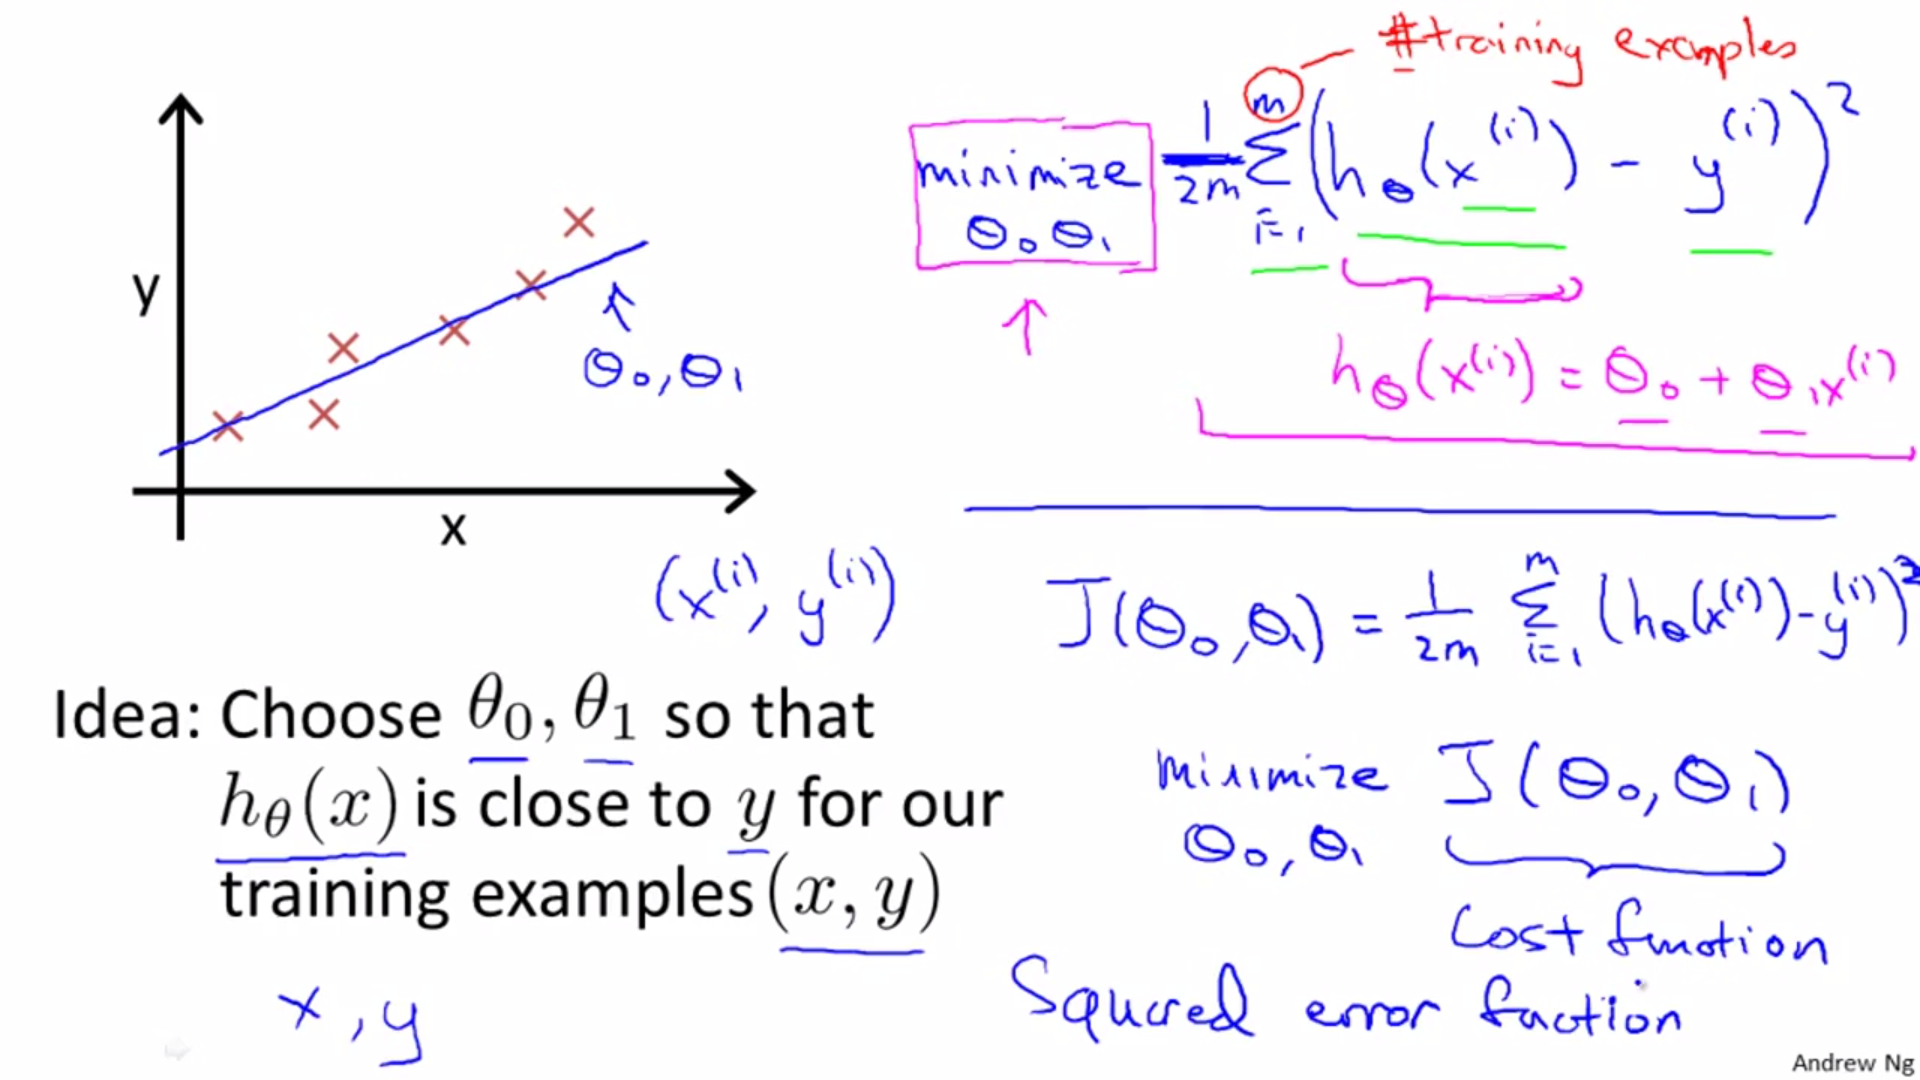 #training examples
minimize θ₀ θ₁ 1/2m Σ_{i=1}^{m} (h_θ(x^{(i)}) - y^{(i)})²
y
θ₀, θ₁
h_θ(x^{(i)}) = θ₀ + θ₁x^{(i)}
x
(x^{(i)}, y^{(i)})
J(θ₀, θ₁) = 1/2m Σ_{i=1}^{m} (h_θ(x^{(i)}) - y^{(i)})²
Idea: Choose θ₀, θ₁ so that
h_θ(x) is close to y for our
training examples (x, y)
x, y
minimize J(θ₀, θ₁)
θ₀, θ₁
Cost function
Squared error function
Andrew Ng